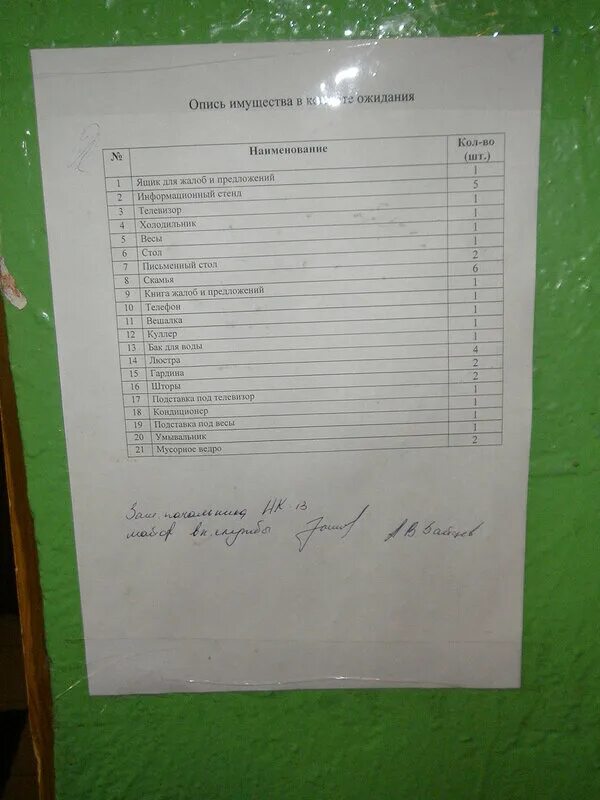 Опись имущества в комнате ожидания
№ Наименование Кол-во (шт.)
1 Ящик для жалоб и предложений 1
2 Информационный стенд 5
3 Телевизор 1
4 Холодильник 1
5 Весы 1
6 Стол 1
7 Письменный стол 2
8 Скамья 6
9 Книга жалоб и предложений 1
10 Телефон 1
11 Вешалка 1
12 Куллер 1
13 Бак для воды 1
14 Люстра 4
15 Гардина 2
16 Шторы 2
17 Подставка под телевизор 1
18 Кондиционер 1
19 Подставка под весы 1
20 Умывальник 1
21 Мусорное ведро 2
Зам. начальника ИК-13
майор вн. службы А В Зайцев